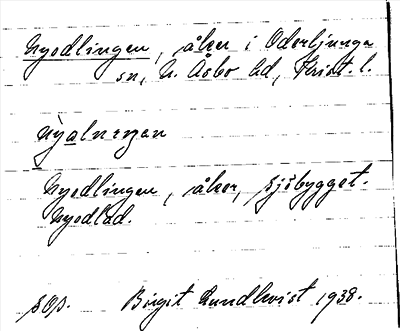 Nyodlingen, åker i Oderljunga
sn, N. Åsbo hd, Krist. l.
nyalnengan
Nyodlingen, åker, sjöbygget.
Nyodlad.
sop. Birgit Lundkvist 1938.